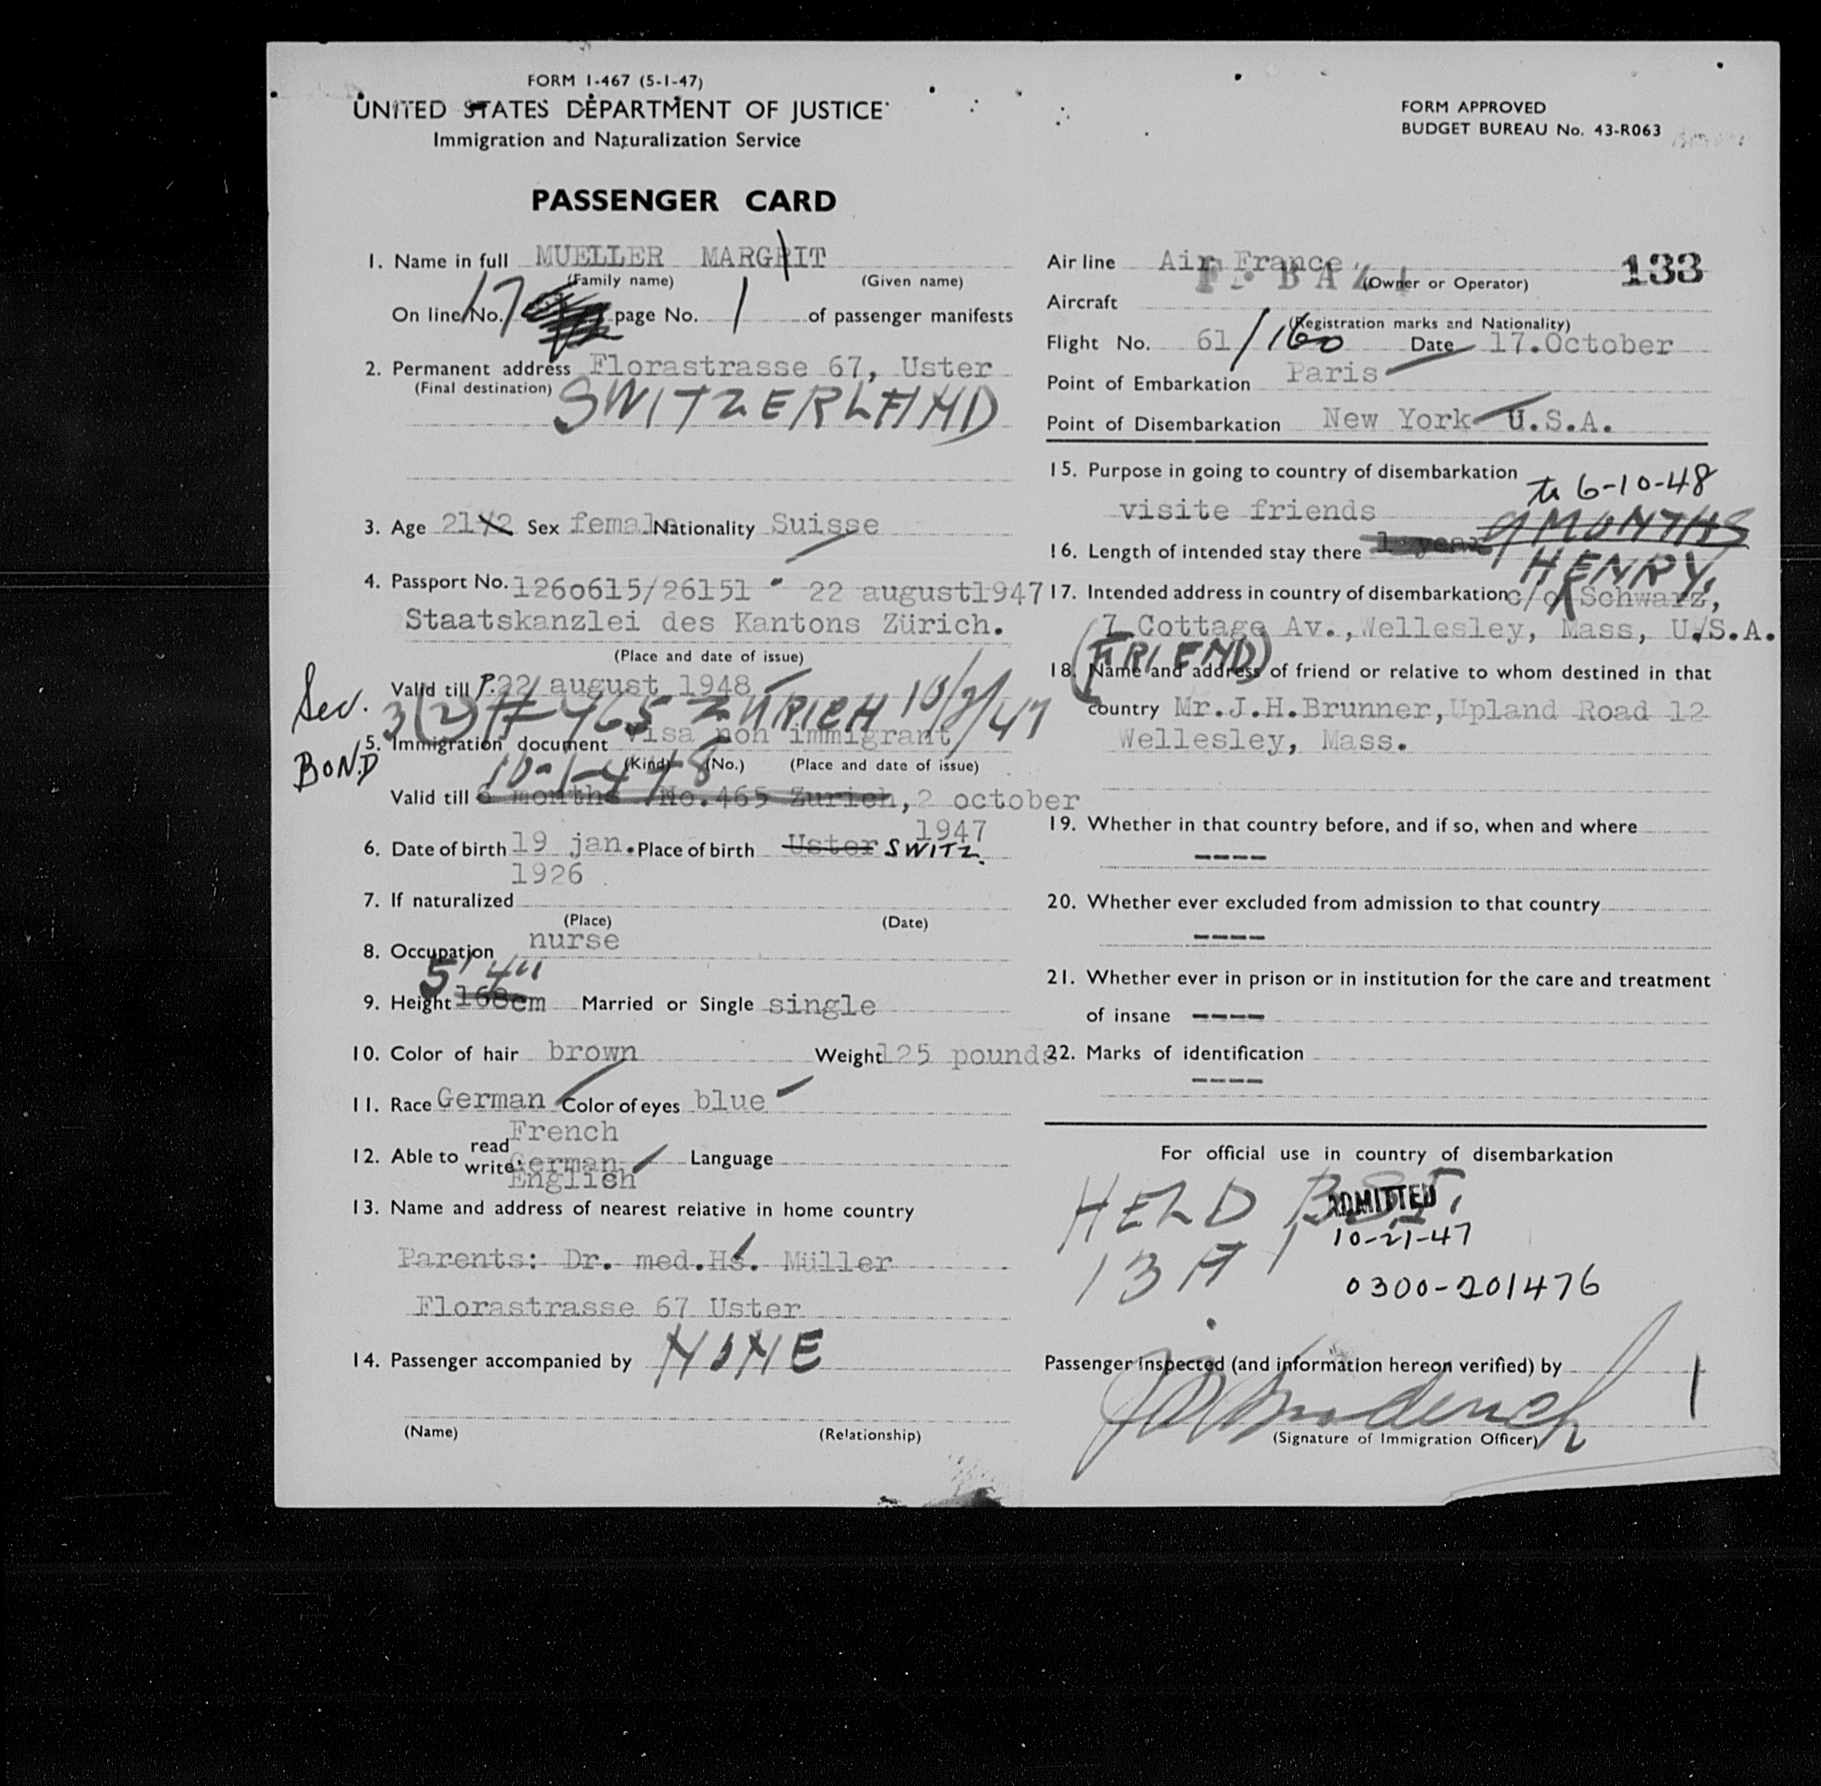 FORM I-467 (5-1-47)
UNITED STATES DEPARTMENT OF JUSTICE
Immigration and Naturalization Service
FORM APPROVED
BUDGET BUREAU No. 43-R063
PASSENGER CARD
1. Name in full MUELLER MARGRIT
(Family name) (Given name)
On line No. 17 page No. 1 of passenger manifests
2. Permanent address Florastrasse 67, Uster
(Final destination)
SWITZERLAND
3. Age 21 1/2 Sex female Nationality Suisse
4. Passport No. 1260615/26151 - 22 august1947
Staatskanzlei des Kantons Zürich.
(Place and date of issue)
Valid till P. 22 august 1948
Sec. 3(2) # 465 ZURICH 10/2/47
5. Immigration document Visa non immigrant
BOND
(Kind) (No.) (Place and date of issue)
10-1-48
Valid till 6 months No.465 Zurich, 2 october
1947
6. Date of birth 19 jan. Place of birth Uster SWITZ.
1926
7. If naturalized
(Place) (Date)
8. Occupation nurse
5' 4"
9. Height 168cm Married or Single single
10. Color of hair brown Weight 125 pounds
11. Race German Color of eyes blue
French
12. Able to read write German Language
English
13. Name and address of nearest relative in home country
Parents: Dr. med.Hs. Müller
Florastrasse 67 Uster
14. Passenger accompanied by NONE
(Name) (Relationship)
Air line Air France 133
(Owner or Operator)
Aircraft
(Registration marks and Nationality)
Flight No. 61/160 Date 17.October
Point of Embarkation Paris
Point of Disembarkation New York U.S.A.
15. Purpose in going to country of disembarkation
to 6-10-48
visite friends
9 MONTHS
16. Length of intended stay there 1 year
HENRY,
17. Intended address in country of disembarkation c/o Schwarz,
7 Cottage Av., Wellesley, Mass, U.S.A.
(FRIEND)
18. Name and address of friend or relative to whom destined in that
country Mr.J.H.Brunner, Upland Road 12
Wellesley, Mass.
19. Whether in that country before, and if so, when and where
----
20. Whether ever excluded from admission to that country
----
21. Whether ever in prison or in institution for the care and treatment
of insane ----
22. Marks of identification
----
For official use in country of disembarkation
HELD B.S.I.
ADMITTED
10-21-47
13A
0300-201476
Passenger inspected (and information hereon verified) by
(Signature of Immigration Officer)